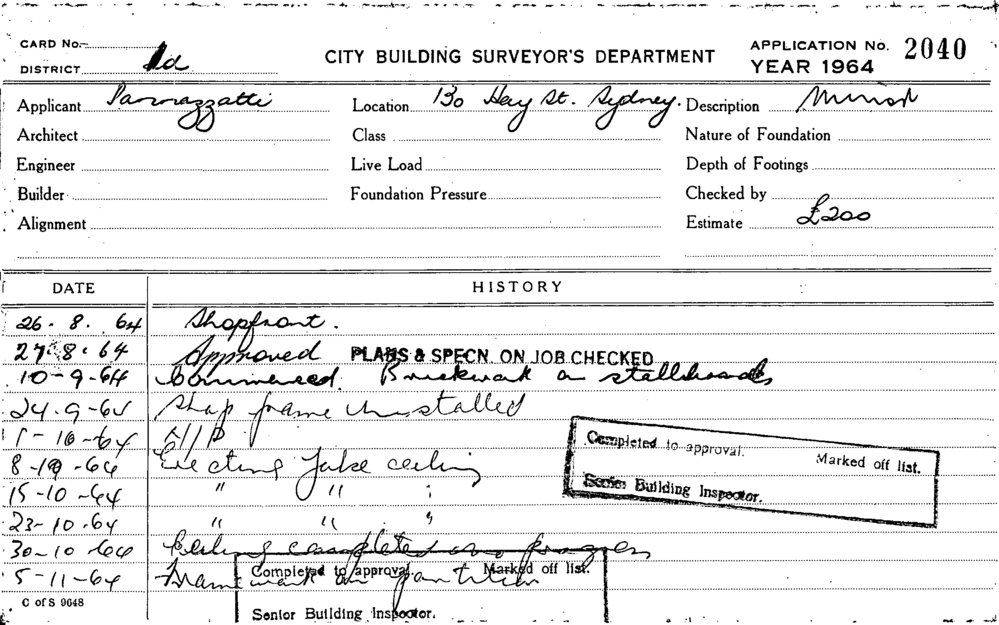 CARD No.
DISTRICT
CITY BUILDING SURVEYOR'S DEPARTMENT
APPLICATION No. 2040
YEAR 1964
Applicant Parmazzatti Location 130 Hay St. Sydney. Description Minor
Architect Class Nature of Foundation
Engineer Live Load Depth of Footings
Builder Foundation Pressure Checked by
Alignment Estimate £200
DATE HISTORY
26. 8. 64 Shopfront.
27. 8. 64 Approved PLANS & SPECN. ON JOB CHECKED
10-9-64 Commenced. Brickwork on stallboards
24-9-64 Shop frame installed
1-10-64
8-10-64 Erecting fake ceiling
15-10-64 " " "
23-10-64 " " "
30-10-64 Ceiling completed no progress
5-11-64 Framework on partition
Completed to approval. Marked off list.
Senior Building Inspector.
Completed to approval. Marked off list.
Senior Building Inspector.
C of S 9648